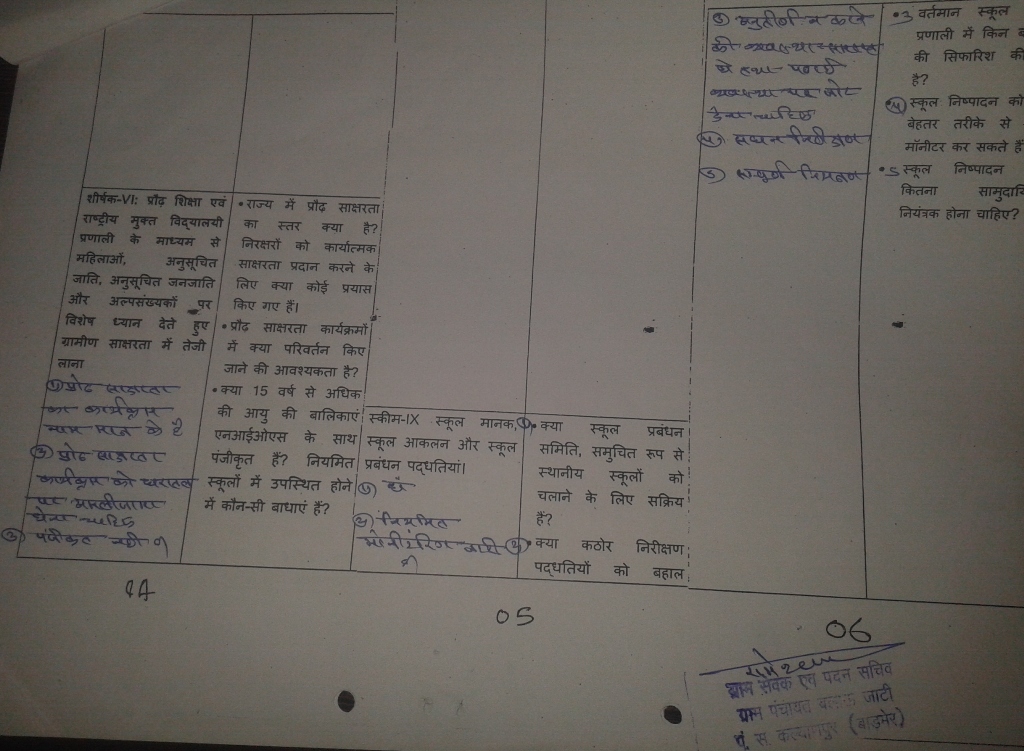 शीर्षक-VI: प्रौढ़ शिक्षा एवं
राष्ट्रीय मुक्त विद्यालयी
प्रणाली के माध्यम से
महिलाओं, अनुसूचित
जाति, अनुसूचित जनजाति
और अल्पसंख्यकों पर
विशेष ध्यान देते हुए
ग्रामीण साक्षरता में तेजी
लाना
① प्रौढ साक्षरता
का कार्यक्रम
नाम मात्र के है
② प्रौढ साक्षरता
कार्यक्रम को धरातल
पर
देना चाहिए
③ पंजीकृत नही है
• राज्य में प्रौढ़ साक्षरता
का स्तर क्या है?
निरक्षरों को कार्यात्मक
साक्षरता प्रदान करने के
लिए क्या कोई प्रयास
किए गए हैं।
• प्रौढ़ साक्षरता कार्यक्रमों
में क्या परिवर्तन किए
जाने की आवश्यकता है?
• क्या 15 वर्ष से अधिक
की आयु की बालिकाएं
एनआईओएस के साथ
पंजीकृत हैं? नियमित
स्कूलों में उपस्थित होने
में कौन-सी बाधाएं हैं?
4A
स्कीम-IX स्कूल मानक,
स्कूल आकलन और स्कूल
प्रबंधन पद्धतियां।
① हाँ
② नियमित
मोनीटरिंग नही
है
① • क्या स्कूल प्रबंधन
समिति, समुचित रूप से
स्थानीय स्कूलों को
चलाने के लिए सक्रिय
हैं?
② • क्या कठोर निरीक्षण
पद्धतियों को बहाल
05
③ अनुतीर्ण न करने
की व्यवस्था समाप्त
हो तथा
व्यवस्था पर जोर
देना चाहिए
④ सघन निरीक्षण
⑤ सम्पूर्ण नियंत्रण
• 3 वर्तमान स्कूल
प्रणाली में किन
की सिफारिश की
है?
• ④ स्कूल निष्पादन को
बेहतर तरीके से
मॉनीटर कर सकते हैं
• 5 स्कूल निष्पादन
कितना
नियंत्रक होना चाहिए?
06
ग्राम सेवक एवं पदेन सचिव
ग्राम पंचायत जाटी
पं. स. कल्याणपुर (बाड़मेर)